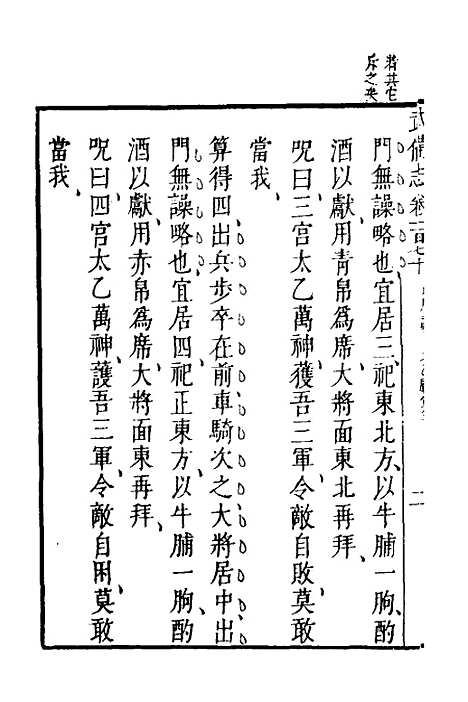 若其宅
斥之央
武備志卷一百七十
二
門無譟略也宜居三祀東北方以牛脯一朐酌
酒以獻用青帛爲席大將面東北再拜
呪曰三宫太乙萬神䕶吾三軍令敵自敗莫敢
當我
算得四出兵步卒在前車騎次之大將居中出
門無譟略也宜居四祀正東方以牛脯一朐酌
酒以獻用赤帛爲席大將面東再拜
呪曰四宫太乙萬神護吾三軍令敵自困莫敢
當我